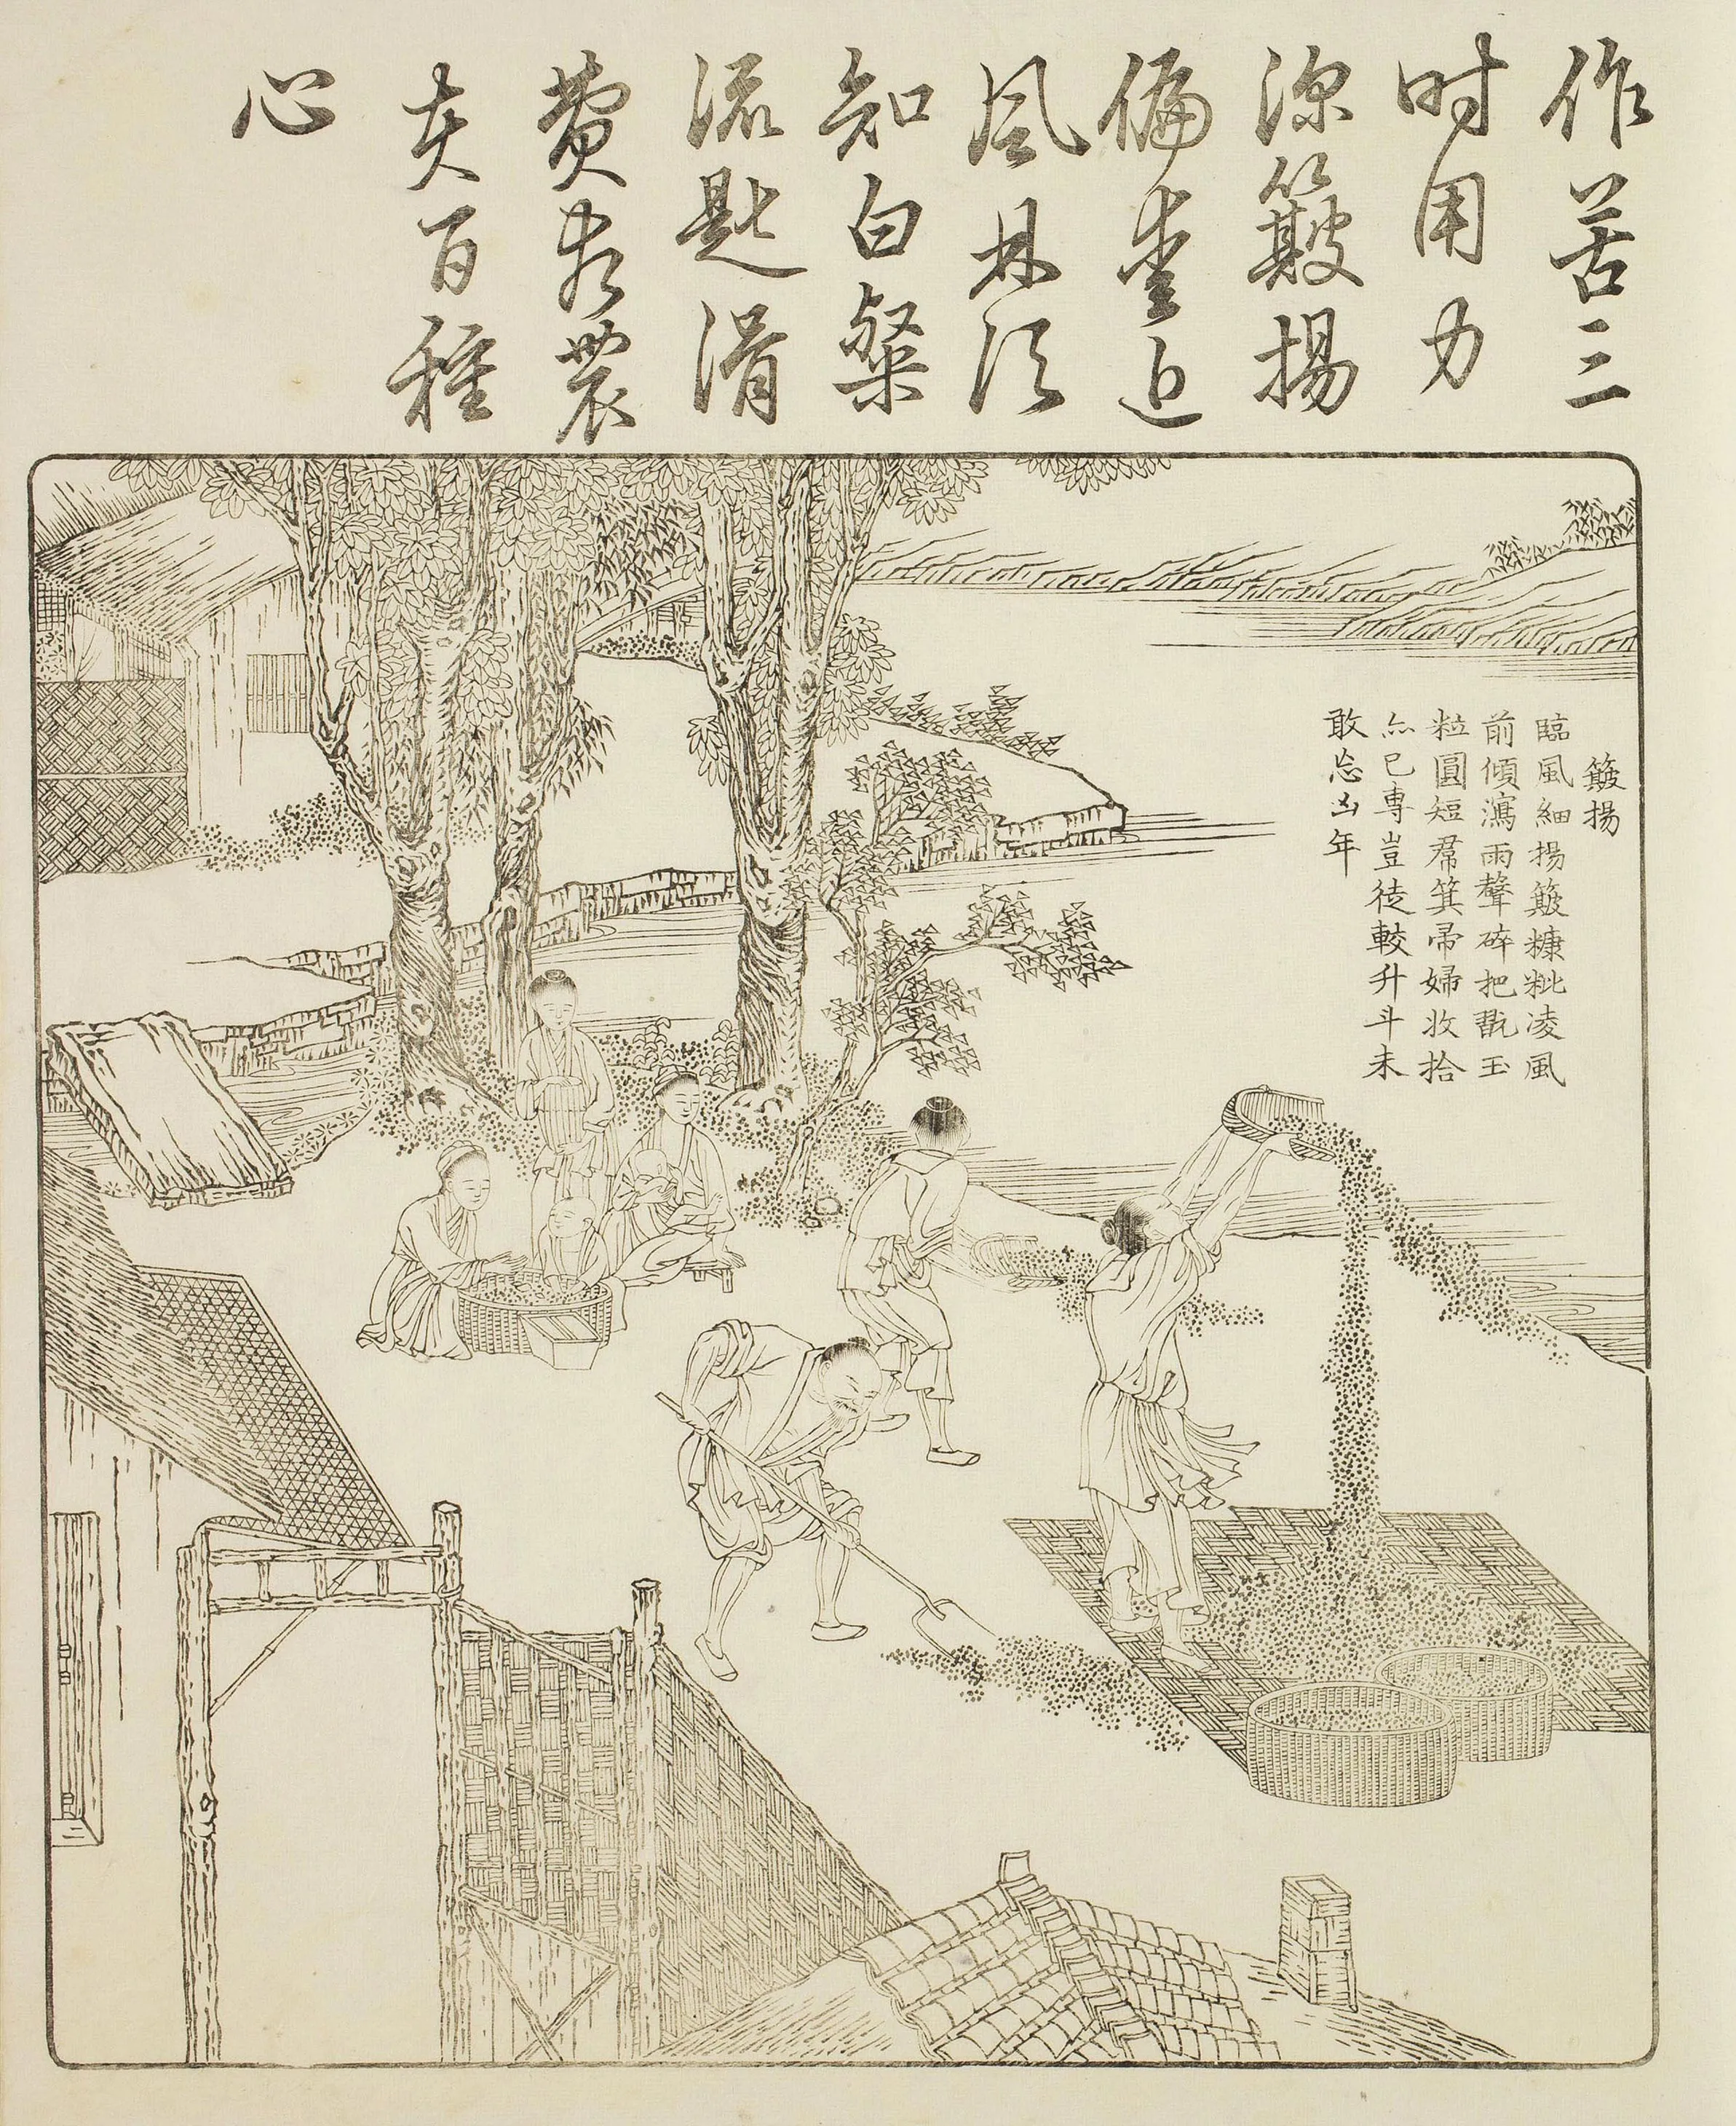 作苦三
时用力
深簸揚
偏愛近
風林須
知白粲
流匙滑
費盡農
夫百種
心
簸揚
臨風細揚簸糠粃凌風
前傾瀉雨聲碎把翫玉
粒圓短帬箕帚婦收拾
亦已専豈徒較升斗未
敢忘凶年